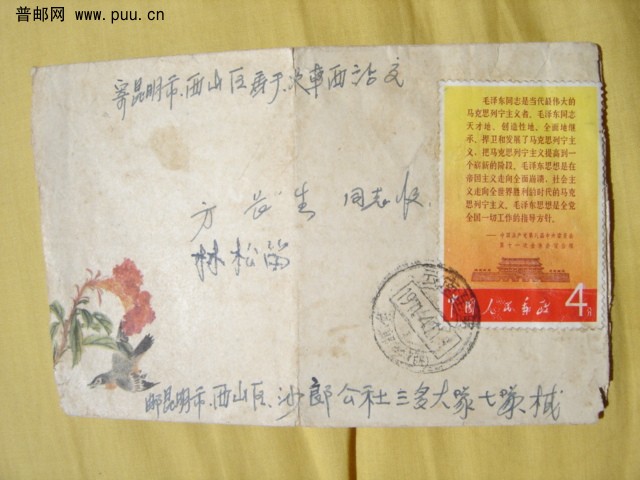 普邮网 www.puu.cn
寄昆明市.西山区
方长生 同志收
林松笛
毛泽东同志是当代最伟大的
马克思列宁主义者。毛泽东同志
天才地、创造性地、全面地继
承、捍卫和发展了马克思列宁主
义，把马克思列宁主义提高到一
个崭新的阶段。毛泽东思想是在
帝国主义走向全面崩溃，社会主
义走向全世界胜利的时代的马克
思列宁主义。毛泽东思想是全党
全国一切工作的指导方针。
中国人民邮政 4分
昆明市.西山区.沙郎公社三多大队七队